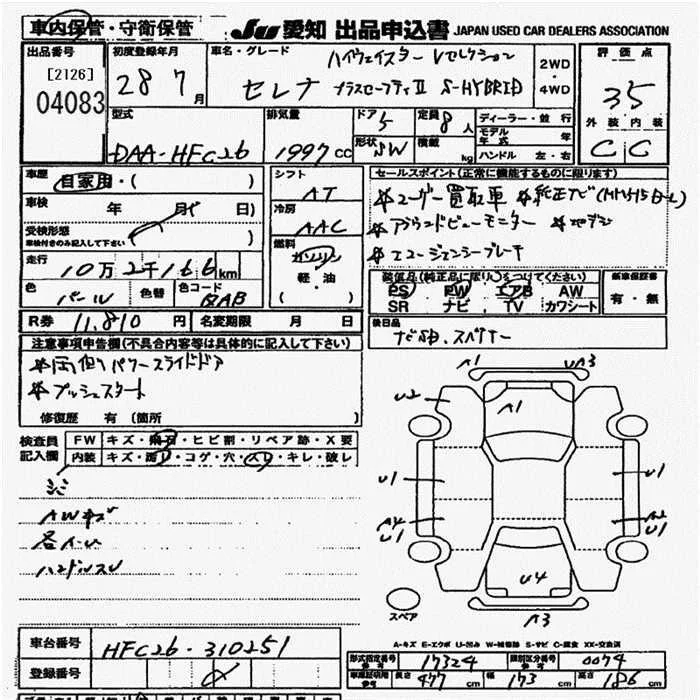 車内保管・守衛保管
JU 愛知 出品申込書 JAPAN USED CAR DEALERS ASSOCIATION
出品番号
[2126]
04083
初度登録年月
28 7 月
車名・グレード
ハイウェイスター Vセレクション
セレナ プラスセーフティII S-HYBRID
2WD
・
4WD
評価点
35
外装 内装
C C
型式
DAA-HFC26
排気量
1997 cc
ドア
5
形状
SW
定員
8 人
積載
kg
ディーラー・並行
モデル年式 年
ハンドル 左・右
車歴
自家用・( )
車検 年 月 日
受検形態
車検付きのみ記入して下さい ( )
走行
10万2千166 km
色
パール
色替
色コード
QAB
シフト
AT
冷房
AAC
燃料
ガソリン
軽・油
( )
セールスポイント(正常に機能するものに限ります)
*ユーザー買取車 *純正ナビ(MM515D-L)
*アラウンドビューモニター *地デジ
*エマージェンシーブレーキ
装備品(純正品に限り)をつけてください)
PS PW エアB AW
SR ナビ TV カワシート
新車保証書
有・無
R券 11,810 円
名変期限 月 日
後日品
ナビSD、スペアキー
注意事項申告欄(不具合内容等は具体的に記入して下さい)
*両側パワースライドドア
*プッシュスタート
修復歴 有(箇所 )
検査員
記入欄
FW キズ・飛石・ヒビ割・リペア跡・X要
内装 キズ・汚レ・コゲ・穴・スレ・キレ・破レ
AWキズ
ハンドルスレ
A1
U3
U2
A1
U1
U1
A4
U1
A2
U1
U4
A3
スペア
A-キズ E-エクボ U-凹み W-補修跡 S-サビ C-腐食 XX-交換済
車台番号
HFC26-310251
登録番号
型式指定番号 参考 17324
類別区分番号 参考 0074
車庫証明用 参考 長さ 477 cm 幅 173 cm 高さ 186 cm